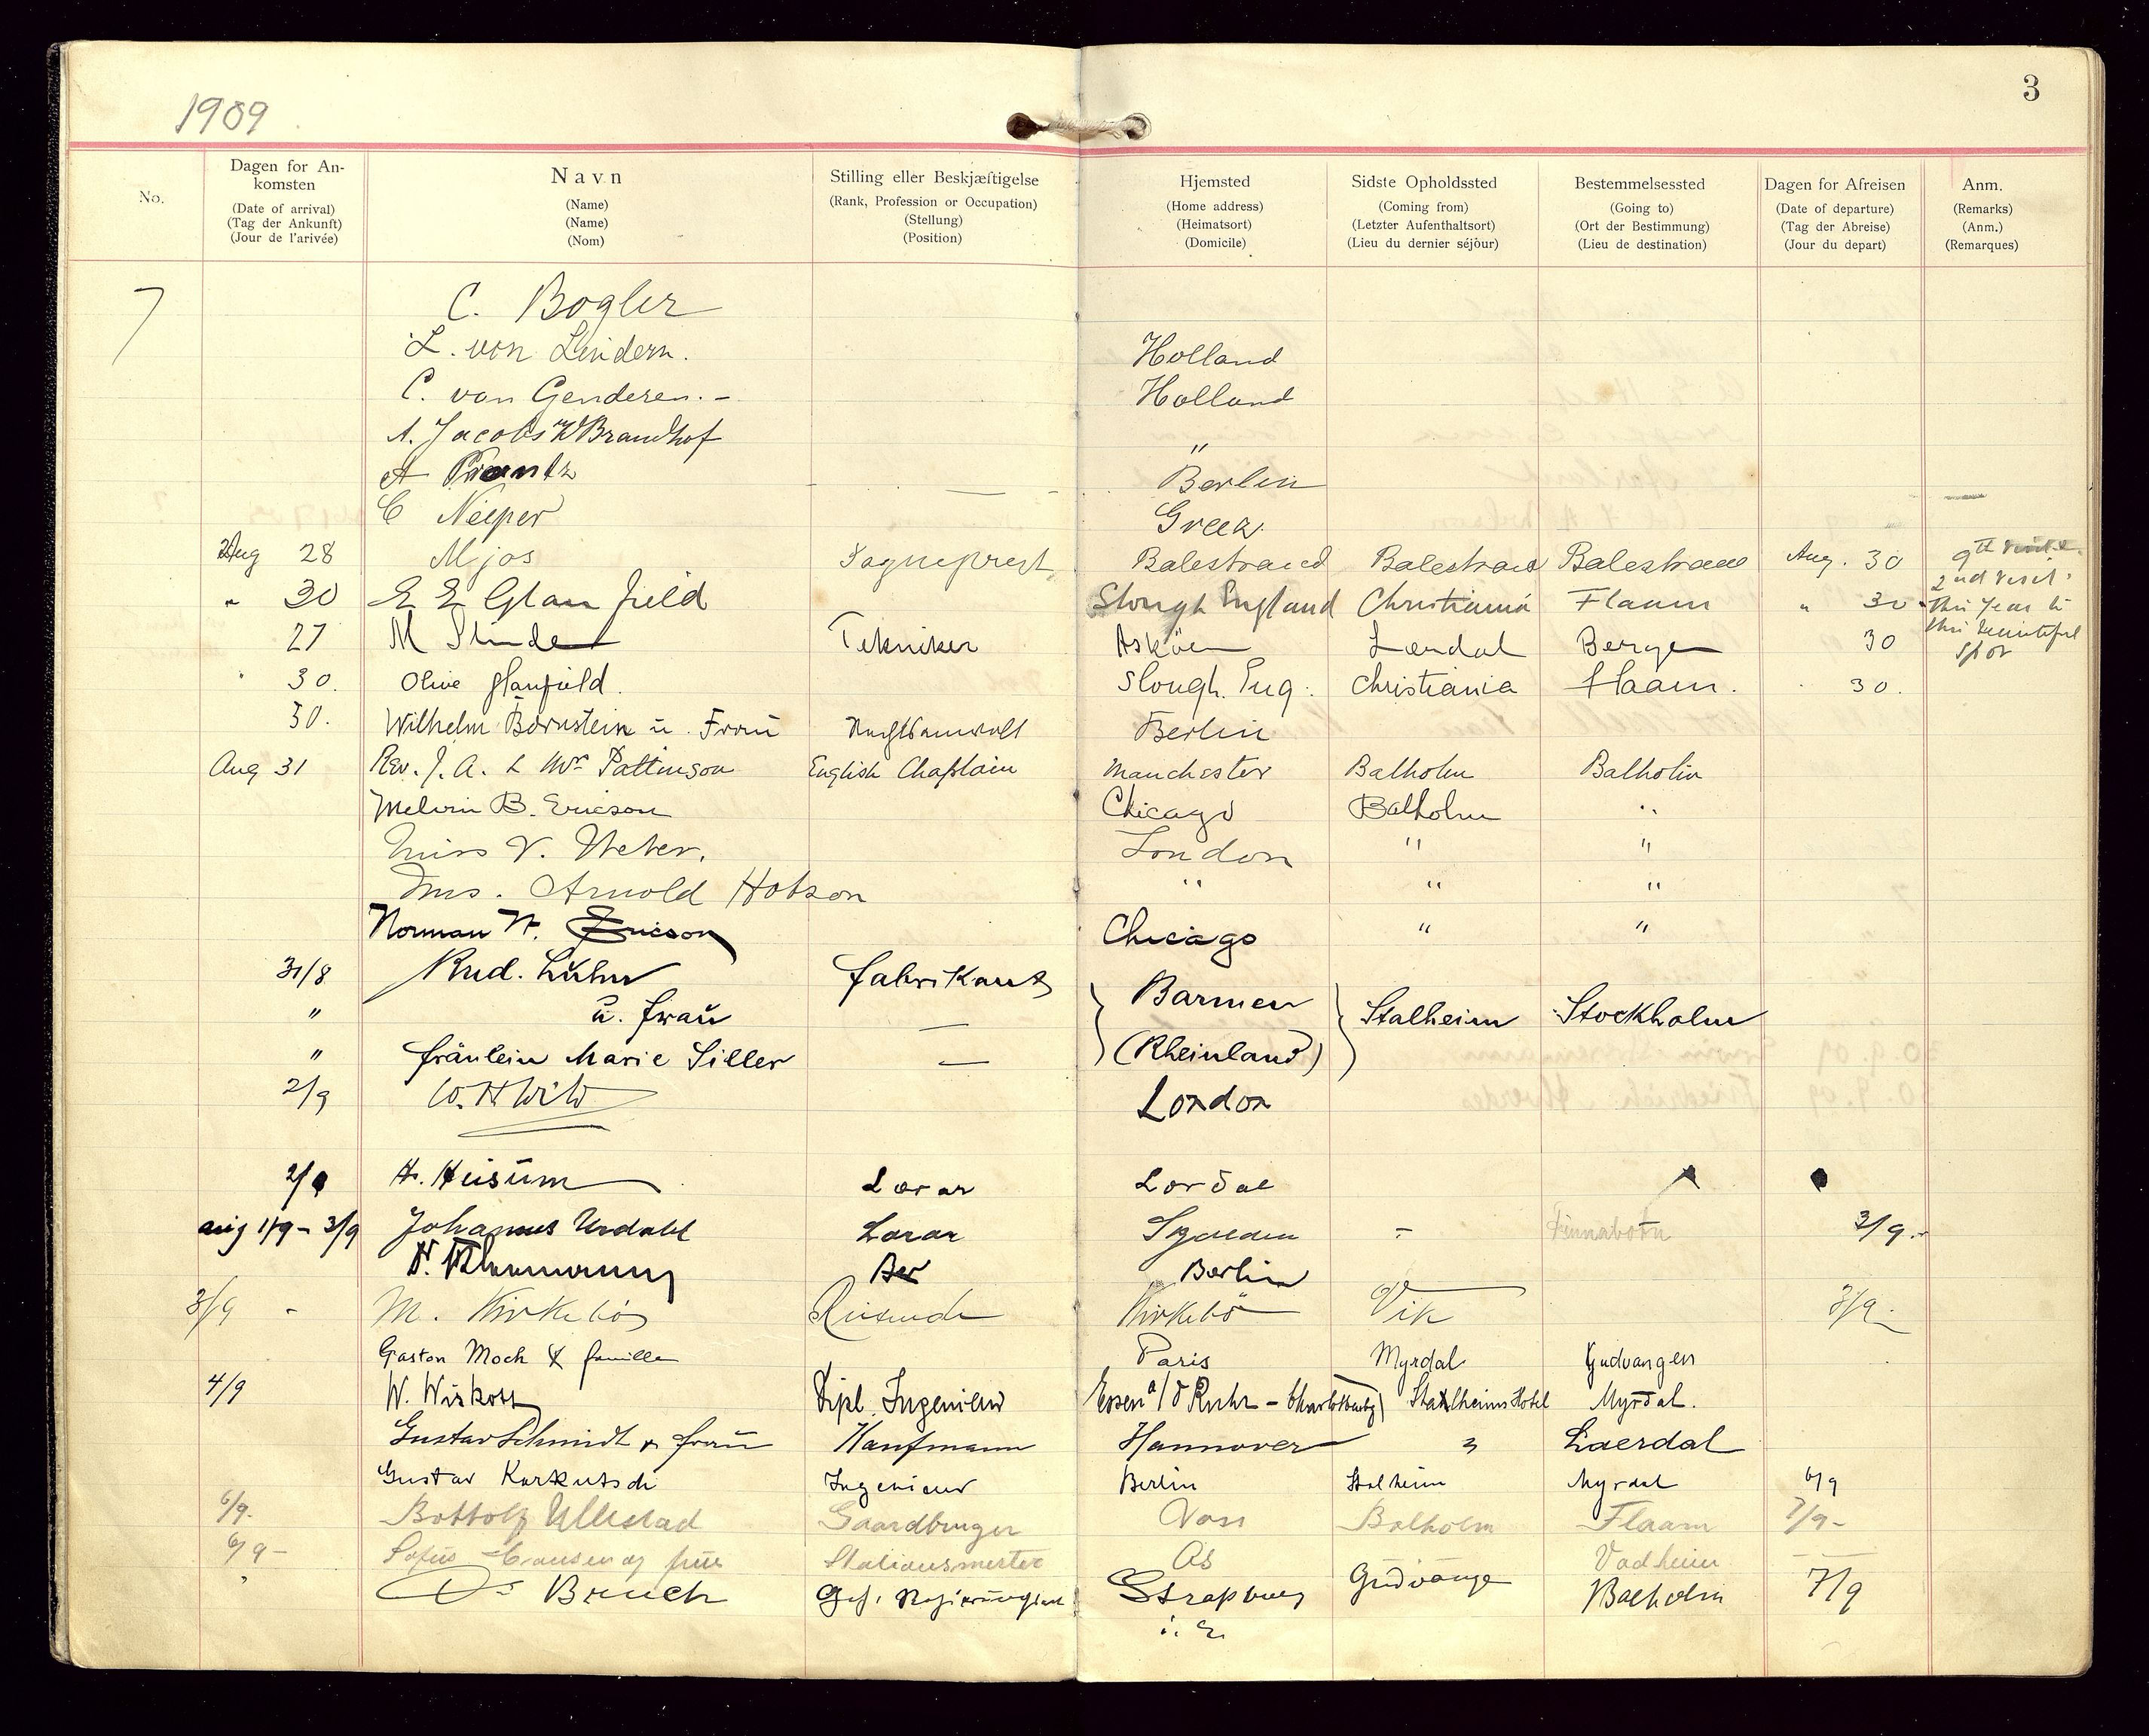 1909
3
No.
Dagen for An-
komsten
(Date of arrival)
(Tag der Ankunft)
(Jour de l'arivée)
Navn
(Name)
(Name)
(Nom)
Stilling eller Beskjæftigelse
(Rank, Profession or Occupation)
(Stellung)
(Position)
Hjemsted
(Home address)
(Heimatsort)
(Domicile)
Sidste Opholdssted
(Coming from)
(Letzter Aufenthaltsort)
(Lieu du dernier séjour)
Bestemmelsessted
(Going to)
(Ort der Bestimmung)
(Lieu de destination)
Dagen for Afreisen
(Date of departure)
(Tag der Abreise)
(Jour du depart)
Anm.
(Remarks)
(Anm.)
(Remarques)
7 C. Bogler
L. von Lindern. Holland
C. van Genderen. - Holland
A. Jacobs Brandhof "
A Berlin
C Neeper
Aug 28 Mjos Sogneprest Balestrand Balestrand Balestrand Aug. 30
" 30 E E Glanfield Slough England Christiania Flaam " 30 2nd visit this year to this beautiful spot
27 M Tekniker Askøen Lærdal Bergen 30
" 30. Olive Glanfield. Slough. Eng. Christiania Flaam. 30.
30. Wilhelm Bernstein u. Frau Rechtsanwalt Berlin
Aug 31 Rev. J. A. & Mrs Pattinson English Chaplain Manchester Balholm Balholm
Melvin B. Ericson Chicago Balholm "
Miss V. London " "
Mrs. Arnold Hobson " " "
Norman Ericson Chicago " "
31/8 Rud. Lühn Fabrikant Barmen Stalheim Stockholm
" u. Frau —
" Fräulein Marie Siller — (Rheinland)
2/9 London
2/9 H. Husum Lærar Lærdal
aug 1/9 - 3/9 Johannes Urdahl Lærar - Finnabotn 3/9.
Berlin
3/9 - M. Kirkebö Reisende Kirkebö Vik 3/9.
Gaston Moch & famille Paris Myrdal Gudvangen
4/9 W. Wiskott Dipl. Ingenieur Essen a/d Ruhr - Charlottenbg) Stalheims Hotel Myrdal.
Gustav Schmidt & Frau Kaufmann Hannover " Laerdal
Gustav Karkutsch Ingenieur Berlin Stalheim Myrdal 6/9
6/9. Bottolf Ullestad Gaardbruger Voss Balholm Flaam 7/9-
6/9 - Sofus Hansen og frue Stationsmester Ås Vadheim
" Dr Bruch Geh. Regierungsrat Strassburg i. E. Gudvangen Balholm 7/9